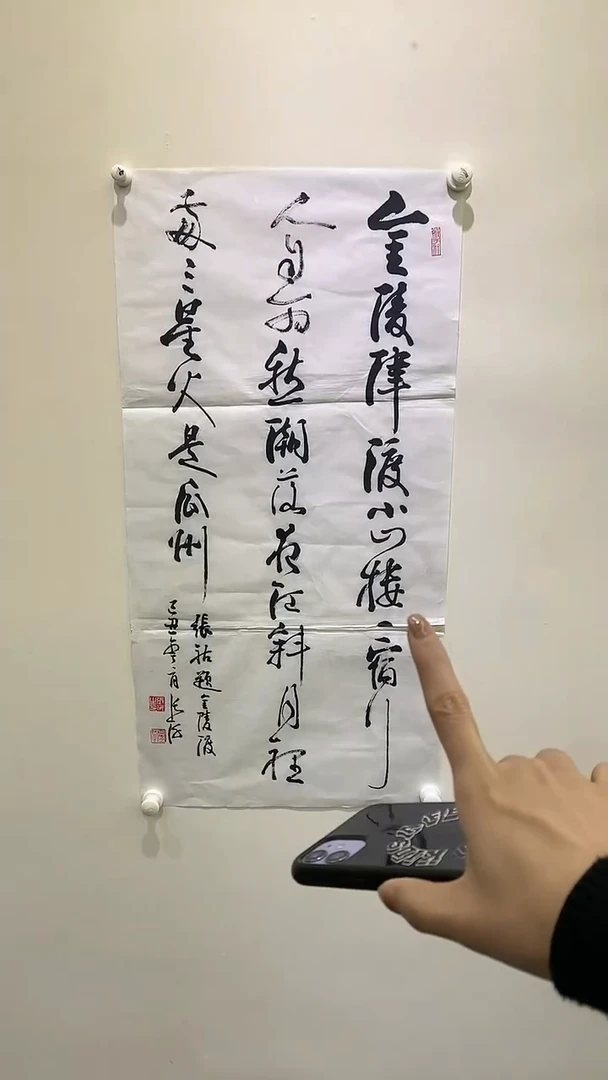 金陵津渡小山樓一宿行
人自可愁潮落夜江斜月裡
兩三星火是瓜州
張祜題金陵渡
己丑